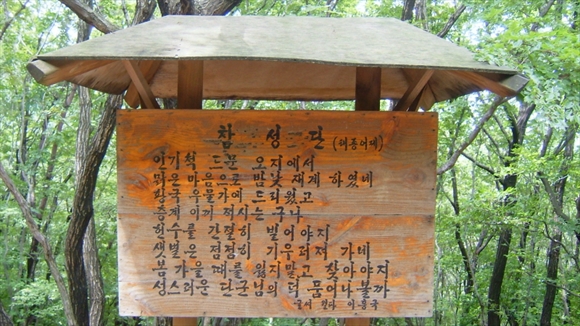 참 성 단 (태종어제)
인기척 드문 오지에서
맑은 마음으로 밤낮 재계 하였네
황국 우물가에 드리웠고
층계 이끼 적시는 구나
헌수를 간절히 빌어야지
샛별은 점점히 기우러져 가네
봄 가을 때를 잃지말고 찾아야지
성스러운 단군님의 덕 품어나볼까